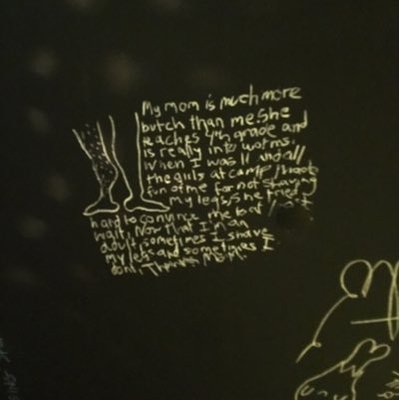 My mom is much more
butch than me. She
teaches 4th grade and
is really into worms.
When I was 11 and all
the girls at camp
fun of me for not shaving
my legs, she tried
hard to convince me to at
wait. Now that I'm an
adult, sometimes I shave
my legs and sometimes I
don't. Thanks Mom.